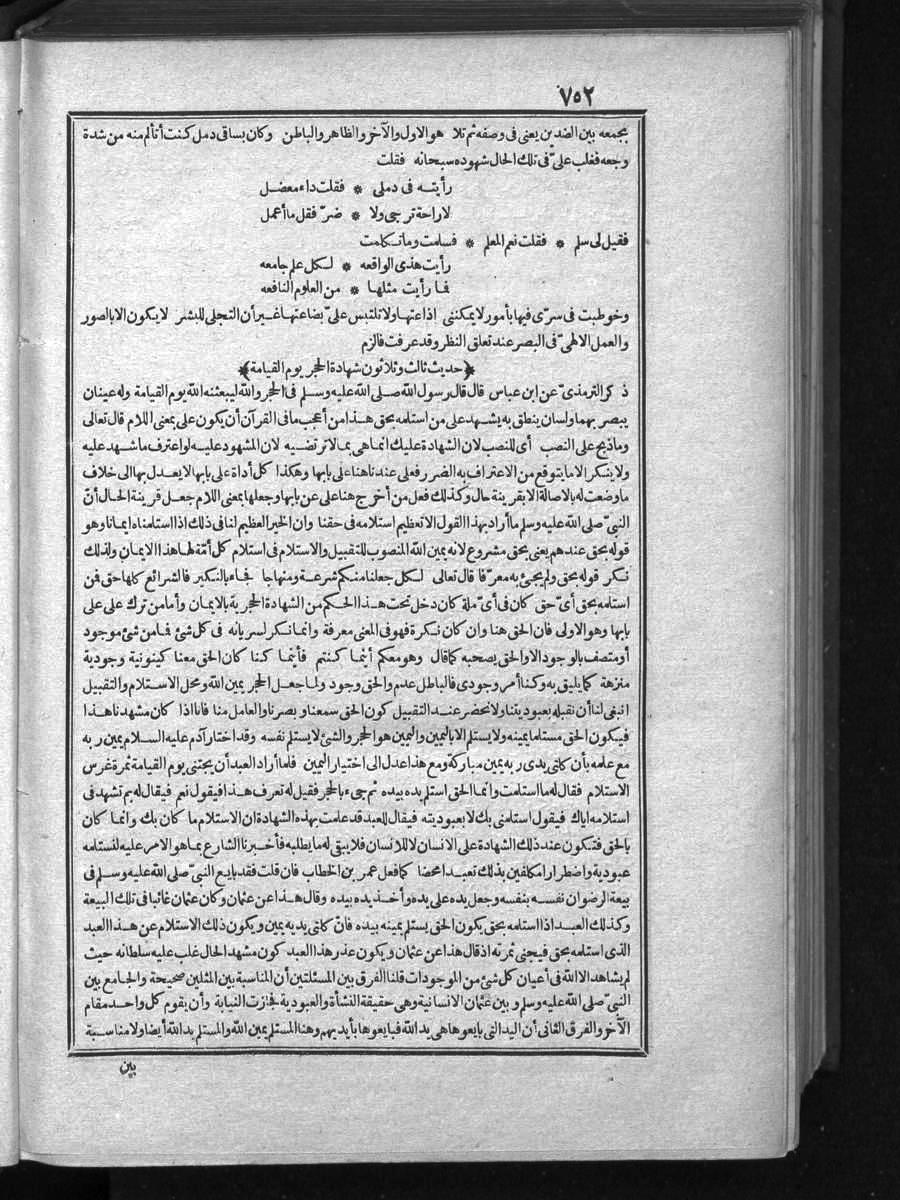 ٧٥٢
بجمعه بين الضدين يعنى فى وصفه ثم تلا هو الاول والآخر والظاهر والباطن وكان بساقى دمل كنت أتألم منه من شدة
وجعه فغلب علىّ فى تلك الحال شهوده سبحانه فقلت
رأيتـه فى دملى * فقلت داء معضـل
لا راحة ترجى ولا * ضرّ فقل ما أعمل
فقيل لى سلم * فقلت نعم المعلم * فسلمت وما تكلمت
رأيت هذى الواقعه * لـكل علم جامعه
فـا رأيت مثلهـا * من العلوم النافعه
وخوطبت فى سرّى فيها بأمور لا يمكننى اذاعتها ولا تلتبس علىّ بضاعتها غـير أن التجلى للبشر لا يكون الا بالصور
والعمل الالهىّ فى البصر عند تعلق النظر وقد عرفت فالزم
﴿حديث ثالث وثلاثون شهادة الحجر يوم القيامة﴾
ذكر الترمذىّ عن ابن عباس قال قال رسول الله صلى الله عليه وسلم فى الحجر والله ليبعثنه الله يوم القيامة وله عينان
يبصر بهما ولسان ينطق به يشـهد على من استلمه بحق هـذا من أعجب ما فى القرآن أن يكون على بمعنى اللام قال تعالى
وما ذبح على النصب أى للنصب لان الشهادة عليك انما هى بما لا ترتضـيه لان المشهود عليـه لو اعترف ما شهد عليه
ولا ينكر الا ما يتوقع من الاعتراف به الضرر فعلى عندنا هنا على بابها وهكذا كل أداة على بابها لا يعدل بها الى خلاف
ما وضعت له بالاصالة الا بقرينة حال وكذلك فعل من أخرج هنا على عن بابها وجعلها بمعنى اللام جعـل قرينة الحال أنّ
النبىّ صلى الله عليه وسلم ما أراد بهذا القول الا تعظيم استلامه فى حقنا وان الخير العظيم لنا فى ذلك اذا استلمناه ايمانا وهو
قوله بحق عندهم يعنى بحق مشروع لانه يمين الله المنصوب للتقبيل والاستلام فى استلام كل أمّة لها هذا الايمان ولذلك
نكر قوله بحق ولم يجئ به معرّفا قال تعالى لـكل جعلنا منـكم شرعـة ومنهاجا فجـاء بالنـكير فالشرائع كلها حق فمن
استلمه بحق أىّ حق كان فى أىّ ملة كان دخل تحت هـذا الحـكم من الشهادة الحجرية بالايمـان وأما من ترك على على
بابها وهو الاولى فان الحق هنا وان كان نـكرة فهو فى المعنى معرفة وانما نـكر لسريانه فى كل شئ فـا من شئ موجود
أو متصف بالوجود الا والحق يصحبه كما قال وهو معكم أينمـا كـنتم فأينما كـنا كان الحق معنا كينونية وجودية
منزهة كما يليق به وكـنا أمر وجودى فالباطل عدم والحق وجود ولما جعـل الحجر يمين الله ومحل الاسـتلام والتقبيل
انبغى لنا أن نقبله بعبوديتنا ولا نحضر عنـد التقبيل كون الحق سمعنا وبصرنا والعامل منا فانا اذا كان مشهدنا هـذا
فيـكون الحق مستلما يمينه ولا يستلم الا باليمين واليمين هو الحجر والشئ لا يستلم نفسه وقد اختار آدم عليه السـلام يمين ربه
مع علمه بأن كلتى يدى ربه يمين مباركة ومع هذا عدل الى اختيار اليمين فلما أراد العبد أن يجتنى يوم القيامة ثمرة غرس
الاستلام فقال له ما استلمت وانمـا الحق استلم يده بيده ثم جىء بالحجر فقيل له تعرف هـذا فيقول نعم فيقال له بم تشهد فى
استلامه اياك فيقول استلمنى بك لا بعبوديته فيقال للعبد قد علمت بهذه الشهادة ان الاستلام ما كان بك وانمـا كان
بالحق فتـكون عند ذلك الشهادة على الانسان لا للانسان فلا يبقى له ما يطلبه فأخـبرنا الشارع بمـا هو الامر عليه لنستلمه
عبودية واضطرارا مكلفين بذلك تعبـدا محضا كما فعل عمر بن الخطاب فان قلت فقد بايع النبىّ صلى الله عليه وسلـم فى
بيعة الرضوان نفسـه بنفسه وجعل يده على يده وأخـذ يده بيده وقال هـذا عن عثمان وكان عثمان غائبا فى تلك البيعة
وكذلك العبـد اذا استلمه بحق يكون الحق يستلم يمينه بيده فانّ كلتى يديه يمين ويكون ذلك الاستلام عن هـذا العبد
الذى استلمه بحق فيجنى ثمرته اذ قال هذا عن عثمان ويكون عذر هذا العبد كون مشهد الحال غلب عليه سلطانه حيث
لم يشاهد الا الله فى أعيان كل شئ من الموجودات قلنا الفرق بين المسئلتين أن المناسبة بين المثلين صحيحة والجامع بين
النبىّ صلى الله عليه وسلم وبين عثمان الانسانية وهى حقيقة النشأة والعبودية فجازت النيابة وأن يقوم كل واحـد مقام
الآخر والفرق الثانى أن اليد التى بايعوها هى يد الله فبايعوها بأيديهم وهنا المستلم يمين الله والمستلم يد الله أيضا ولا مناسـبة
بين